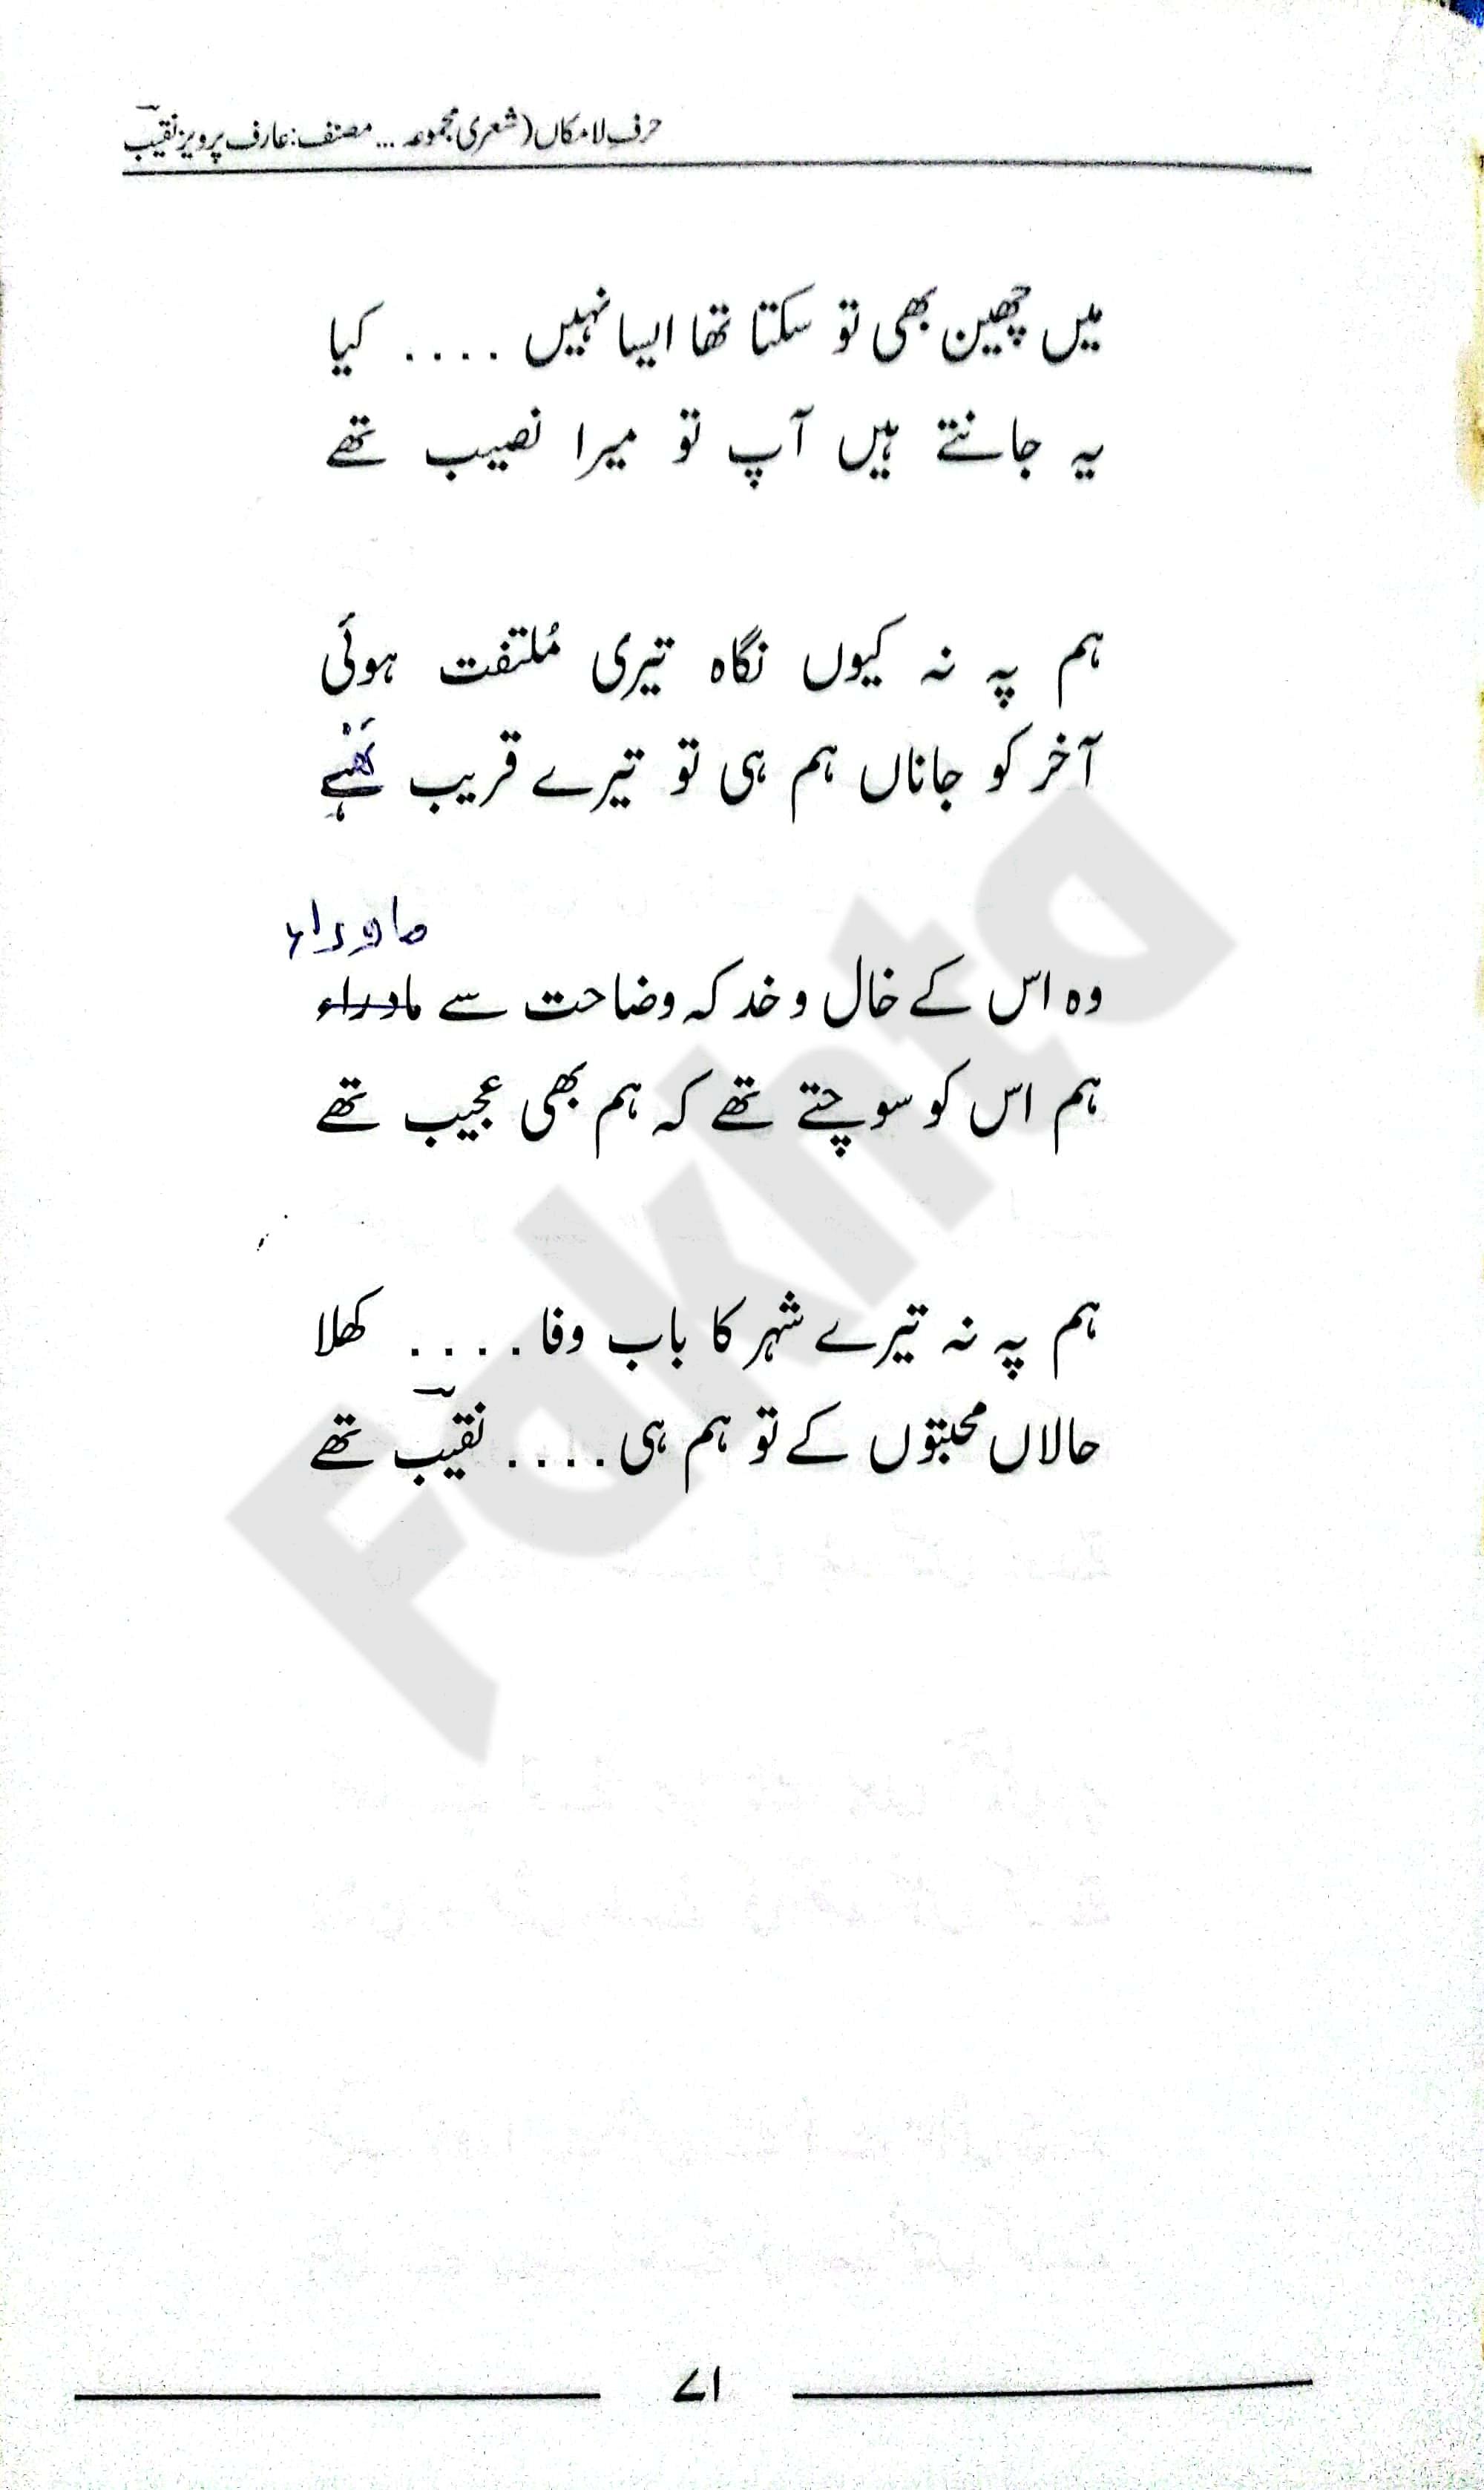 حرفِ لامکاں (شعری مجموعہ ... مصنف: عارف پرویز نقیبؔ
میں چھین بھی تو سکتا تھا ایسا نہیں .... کیا
یہ جانتے ہیں آپ تو میرا نصیب تھے
ہم پہ نہ کیوں نگاہ تیری مُلتفت ہوئی
آخر کو جاناں ہم ہی تو تیرے قریب تھے
ماوراء
وہ اس کے خال و خد کہ وضاحت سے مادراء
ہم اس کو سوچتے تھے کہ ہم بھی عجیب تھے
ہم پہ نہ تیرے شہر کا باب وفا .... کھلا
حالاں محبتوں کے تو ہم ہی .... نقیبؔ تھے
Fakhta
۷۱